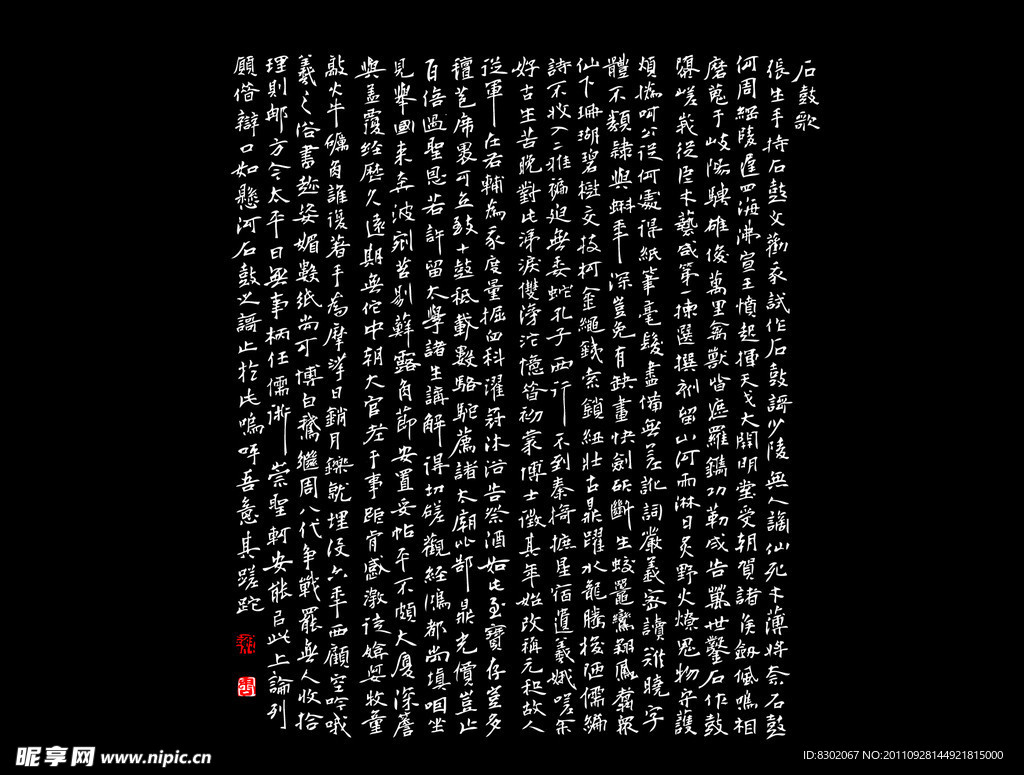 石鼓歌
張生手持石鼓文勸我試作石鼓謌少陵無人謫仙死才薄將奈石鼓
何周綱陵遲四海沸宣王憤起揮天戈大開明堂受朝賀諸侯劔佩鳴相
磨蒐于岐陽騁雄俊萬里禽獸皆遮羅鐫功勒成告萬世鑿石作鼓
隳嵯峩從臣才藝咸第一揀選撰刻留山河雨淋日炙野火燎鬼物守護
煩撝呵公從何處得紙筆毫髮盡備無差訛詞嚴義密讀難曉字
體不類隸與蝌年深豈免有缺畫快劍斫斷生蛟鼉鸞翔鳳翥衆
仙下珊瑚碧樹交枝柯金繩鐵索鎖紐壯古鼎躍水龍騰梭陋儒編
詩不收入二雅褊迫無委蛇孔子西行不到秦掎摭星宿遺羲娥嗟余
好古生苦晚對此涕淚雙滂沱憶昔初蒙博士徵其年始改稱元和故人
從軍在右輔為我度量掘臼科濯冠沐浴告祭酒如此至寶存豈多
氊苞席裹可立致十鼓秪載數駱駝薦諸太廟比郜鼎光價豈止
百倍過聖恩若許留太學諸生講解得切磋觀經鴻都尚填咽坐
見舉國來奔波剜苔剔蘚露角節安置妥帖平不頗大廈深簷
與盖覆經歷久遠期無佗中朝大官老于事詎肯感激徒媕娿牧童
敲火牛礪角誰復著手為摩挲日銷月鑠就埋沒六年西顧空吟哦
羲之俗書趁姿媚數紙尚可博白鵞繼周八代争戰罷無人收拾
理則那方今太平日無事柄任儒術崇丘軻安能以此上論列
願借辯口如懸河石鼓之謌止於此嗚呼吾意其蹉跎
昵享网 www.nipic.cn
ID:8302067 NO:20110928144921815000